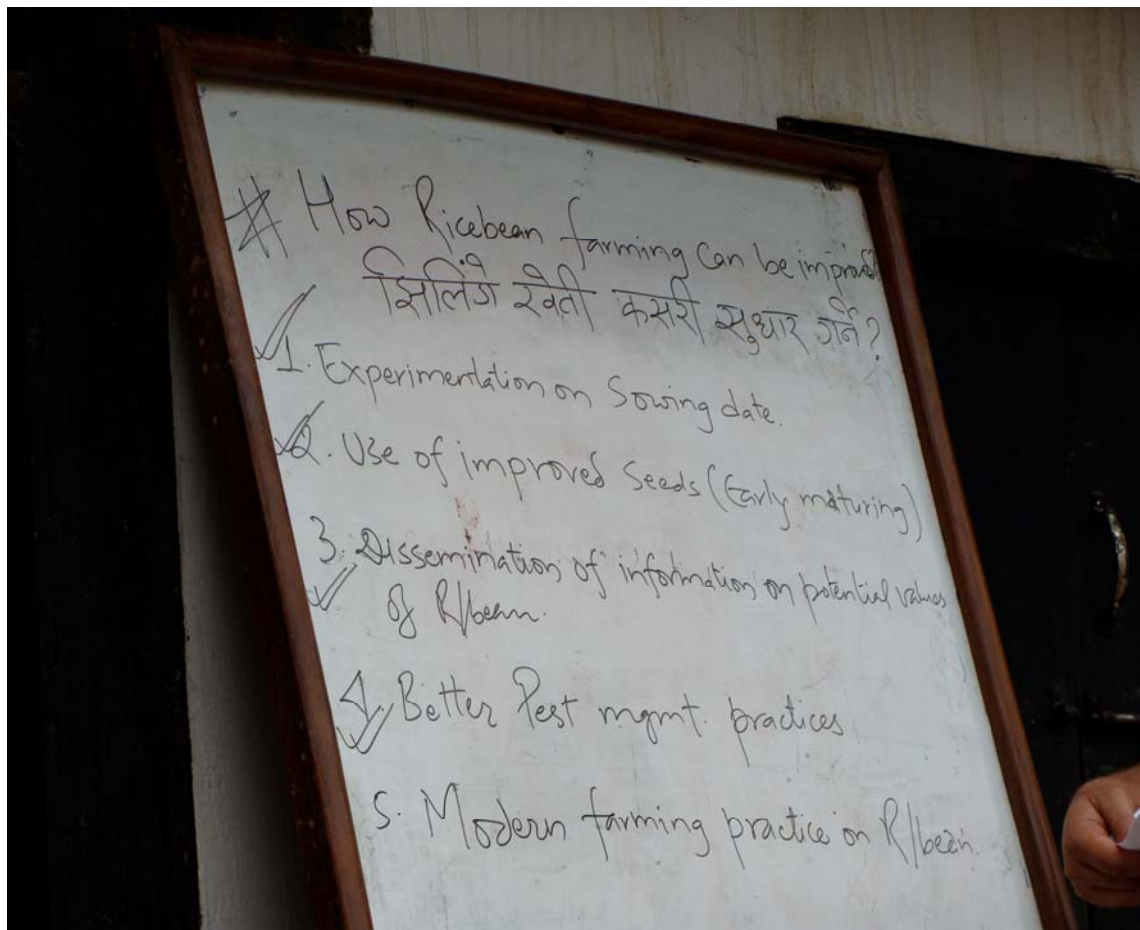 # How Ricebean farming can be improved?
झिलिंगे खेती कसरी सुधार गर्ने?
1. Experimentation on Sowing date.
2. Use of improved Seeds (Early maturing)
3. Dissemination of information on potential values
of R/bean.
4. Better Pest mgmt. practices
5. Modern farming practice on R/bean.